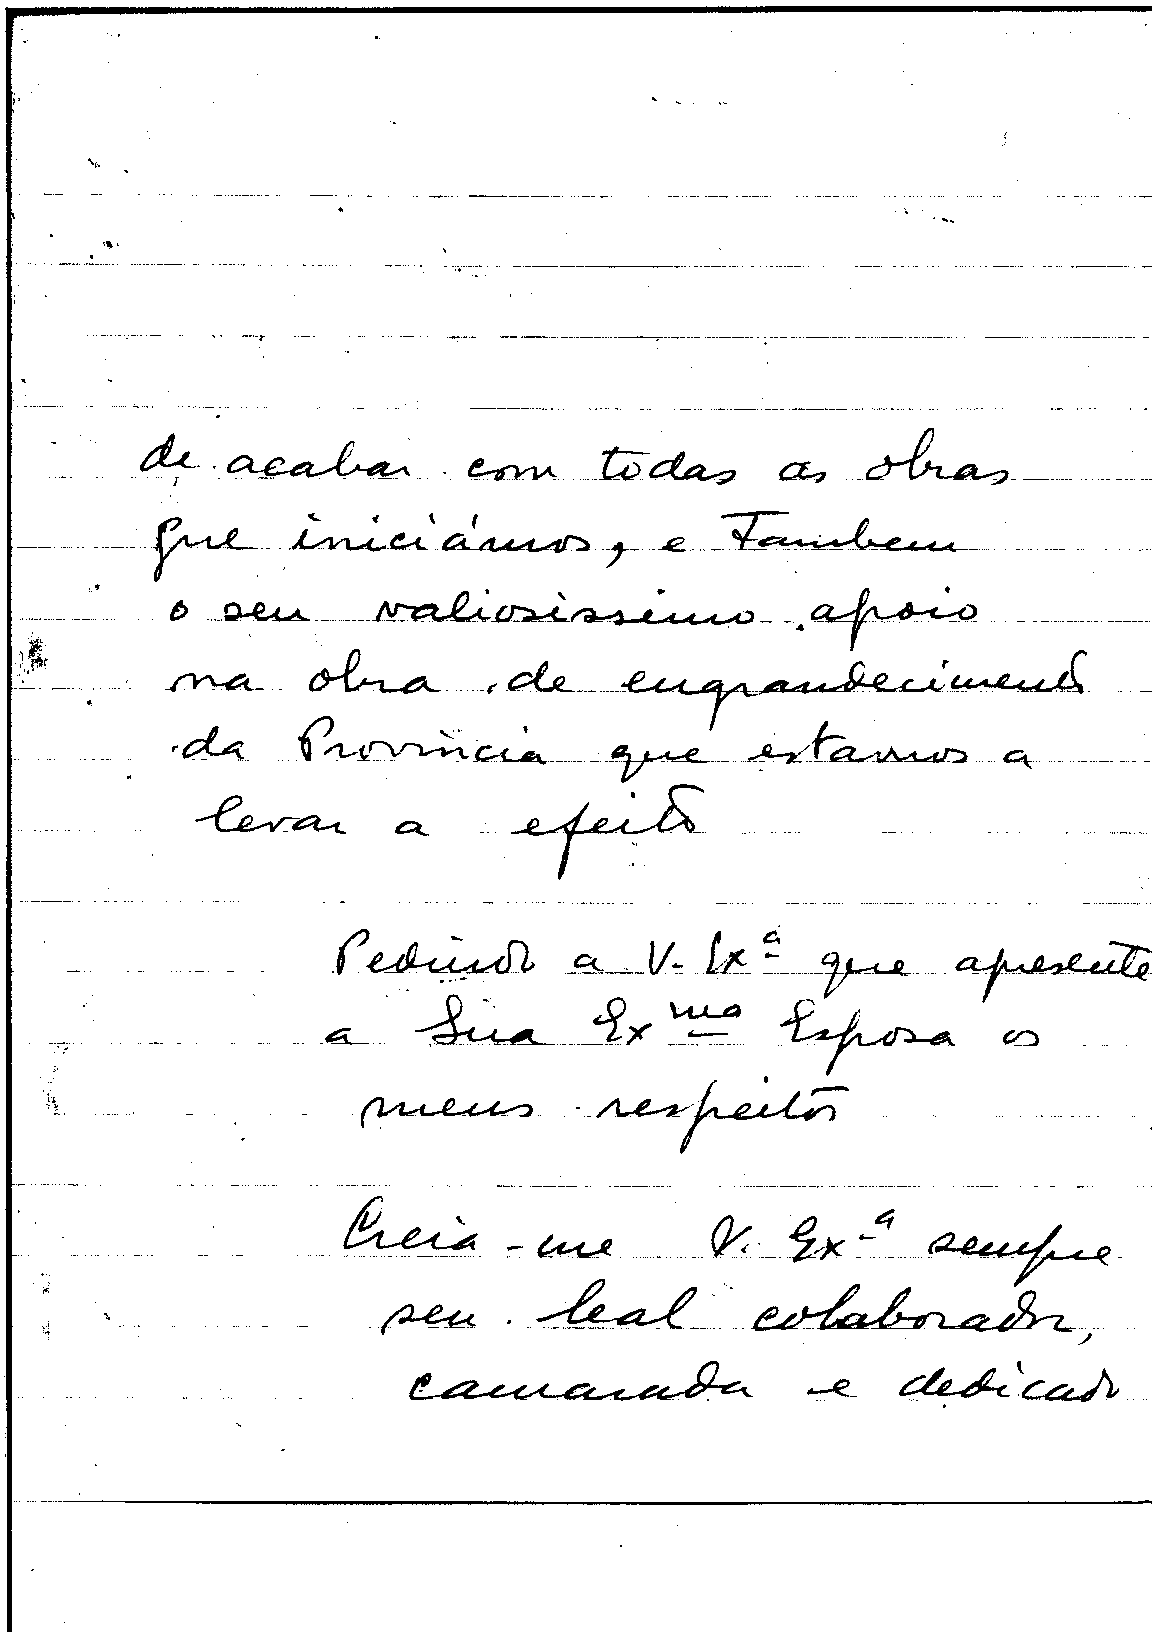 de acabar com todas as obras
que iniciámos, e Tambem
o seu valiosissimo apoio
na obra de engrandecimento
da Provincia que estamos a
levar a efeito
Pedindo a V. Exª que apresente
a Sua Exma Esposa os
meus respeitos
Creia-me V. Exª sempre
seu leal colaborador,
camarada e dedicado